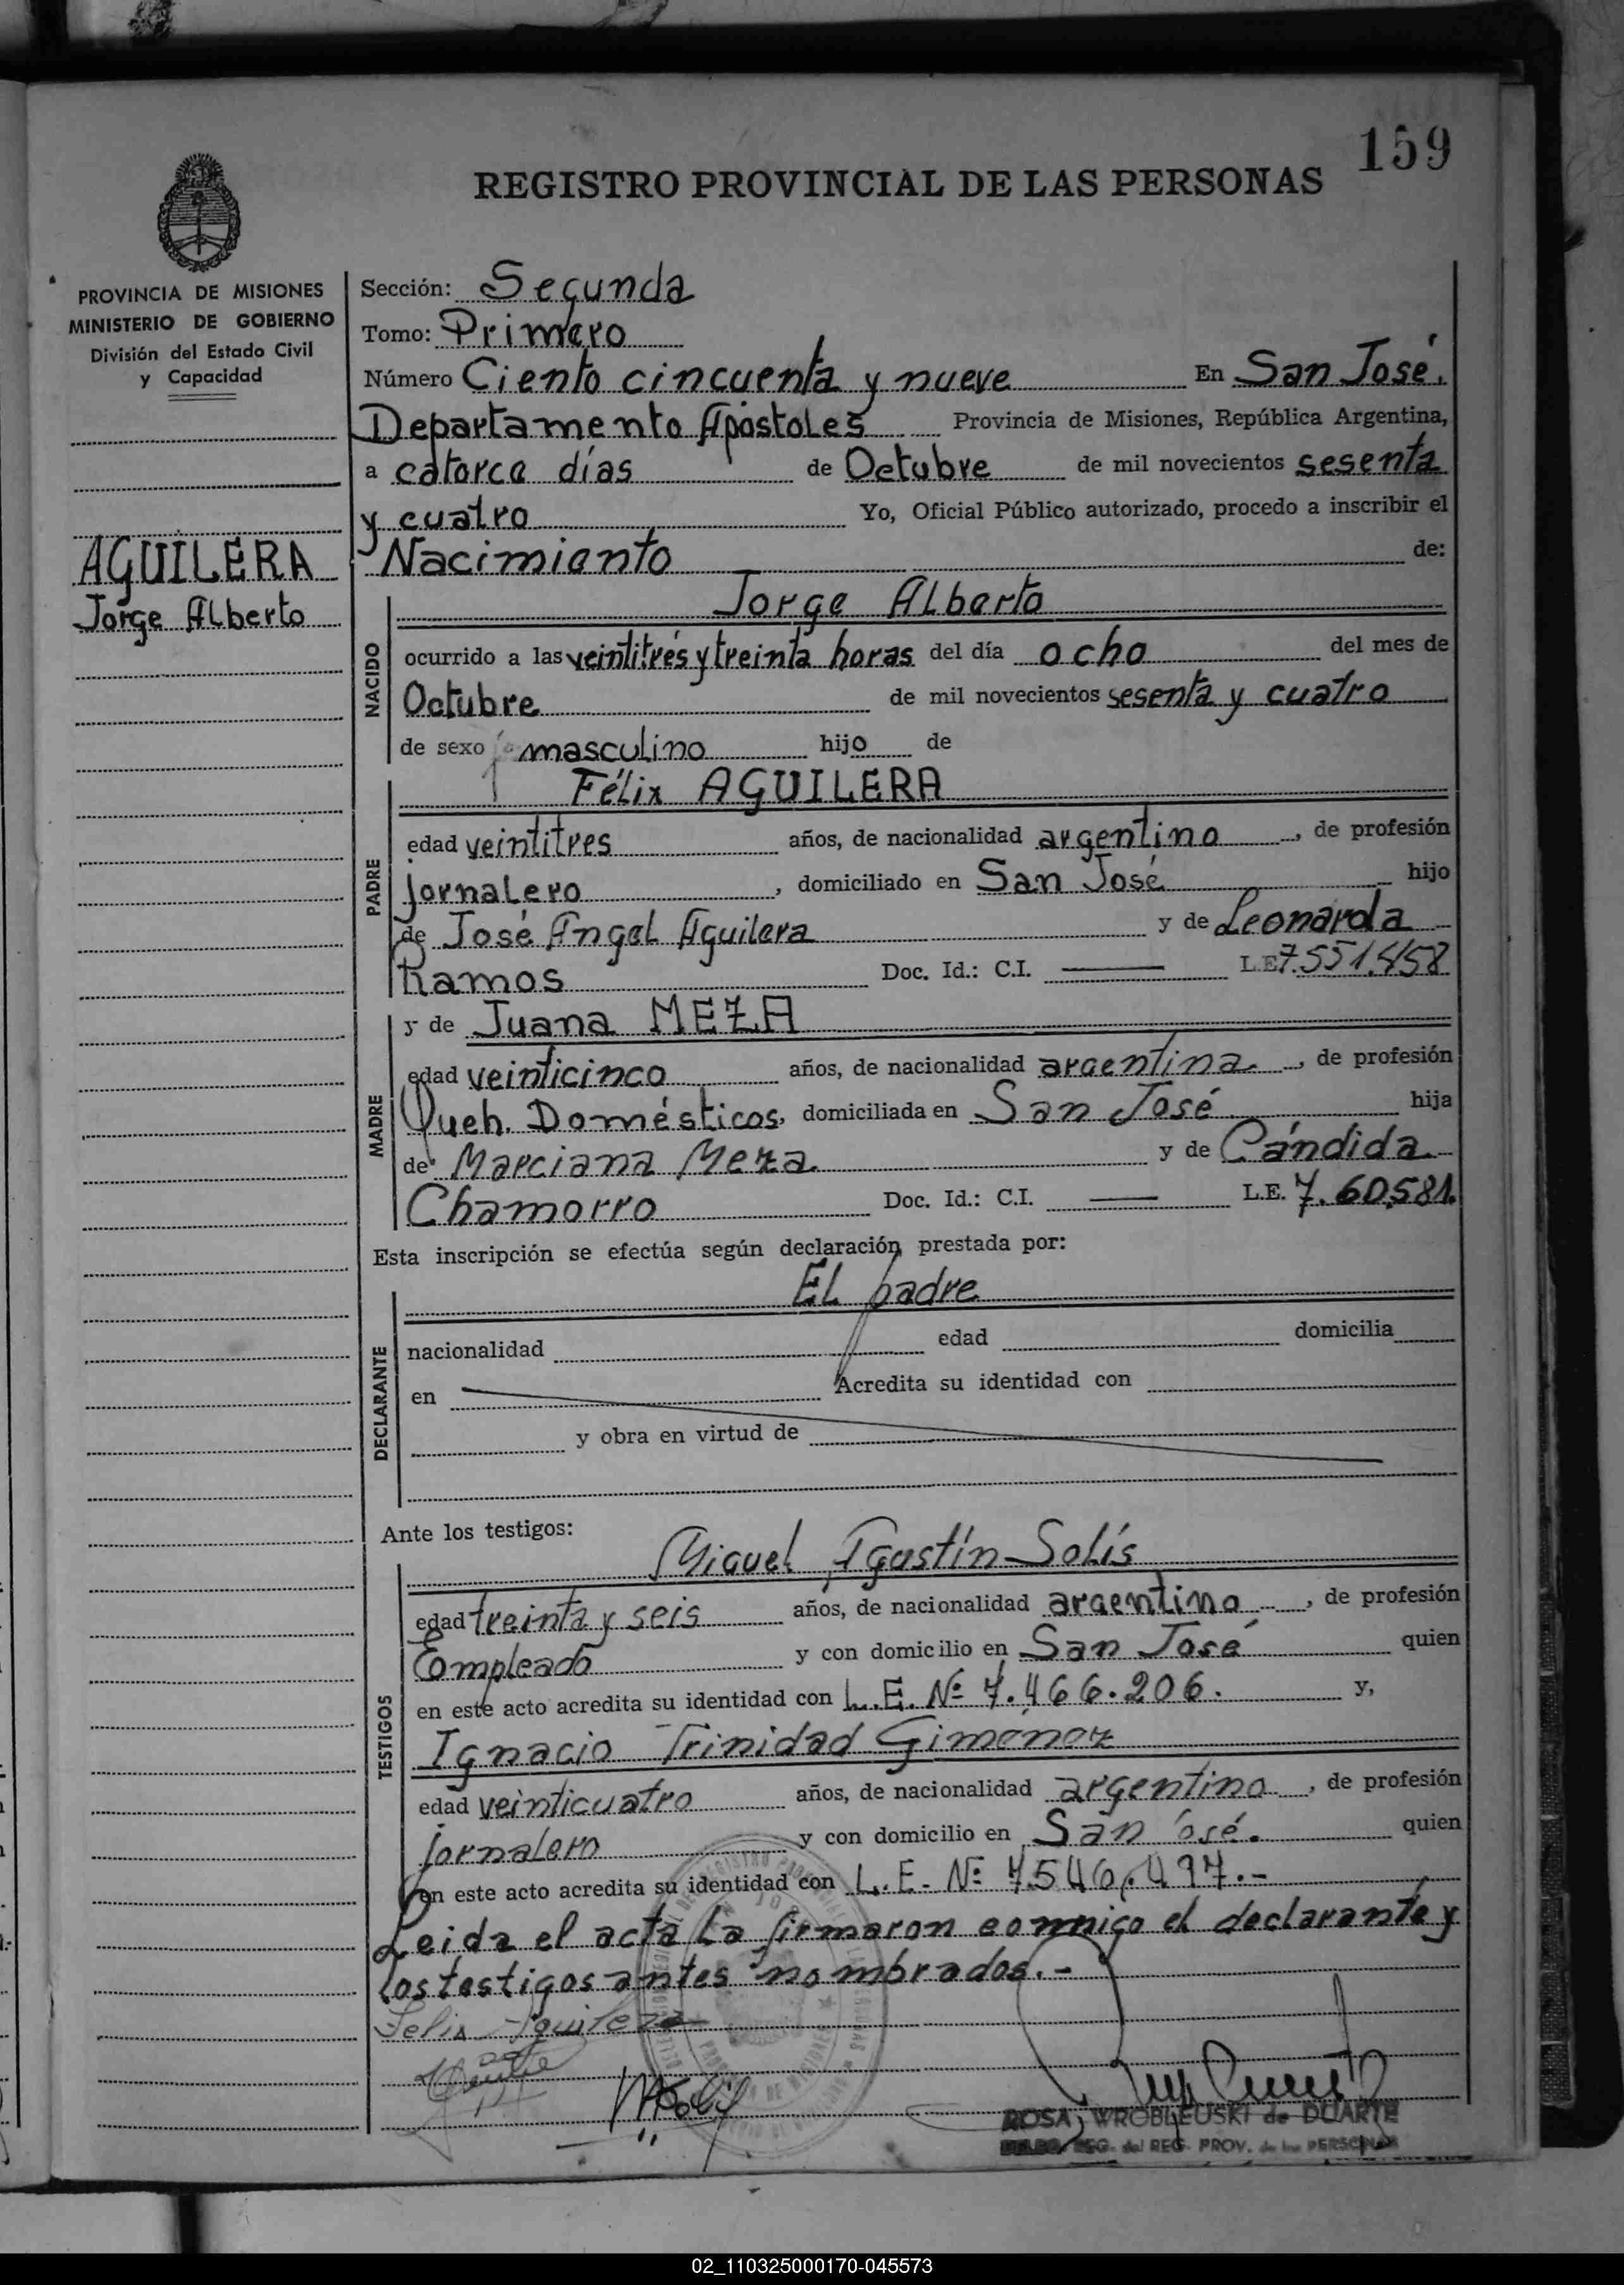 159
REGISTRO PROVINCIAL DE LAS PERSONAS
PROVINCIA DE MISIONES
MINISTERIO DE GOBIERNO
División del Estado Civil
y Capacidad
AGUILERA
Jorge Alberto
Sección: Segunda
Tomo: Primero
Número Ciento cincuenta y nueve En San José,
Departamento Apóstoles Provincia de Misiones, República Argentina,
a catorce días de Octubre de mil novecientos sesenta
y cuatro Yo, Oficial Público autorizado, procedo a inscribir el
Nacimiento de:
NACIDO
Jorge Alberto
ocurrido a las veintitrés y treinta horas del día ocho del mes de
Octubre de mil novecientos sesenta y cuatro
de sexo masculino hijo de
PADRE
Félix AGUILERA
edad veintitres años, de nacionalidad argentino, de profesión
jornalero, domiciliado en San José hijo
de José Angel Aguilera y de Leonarda
Ramos Doc. Id.: C.I. L.E. 7.551.458
MADRE
y de Juana MEZA
edad veinticinco años, de nacionalidad argentina, de profesión
Queh. Domésticos, domiciliada en San José hija
de Marciana Meza y de Cándida
Chamorro Doc. Id.: C.I. L.E. 7.60581.
Esta inscripción se efectúa según declaración prestada por:
DECLARANTE
El padre
nacionalidad edad domicilia
en Acredita su identidad con
y obra en virtud de
Ante los testigos:
TESTIGOS
Miguel Agustín Solís
edad treinta y seis años, de nacionalidad argentino, de profesión
Empleado y con domicilio en San José quien
en este acto acredita su identidad con L.E. Nº 7.466.206. y,
Ignacio Trinidad Gimenez
edad veinticuatro años, de nacionalidad argentino, de profesión
jornalero y con domicilio en San José. quien
en este acto acredita su identidad con L.E. Nº 7.546.497.-
Leida el acta la firmaron conmigo el declarante y
los testigos antes nombrados.-
Felix Aguilera
MASolís
ROSA WROBLEUSKI de DUARTE
REG. del REG. PROV. de las PERSONAS
02_110325000170-045573